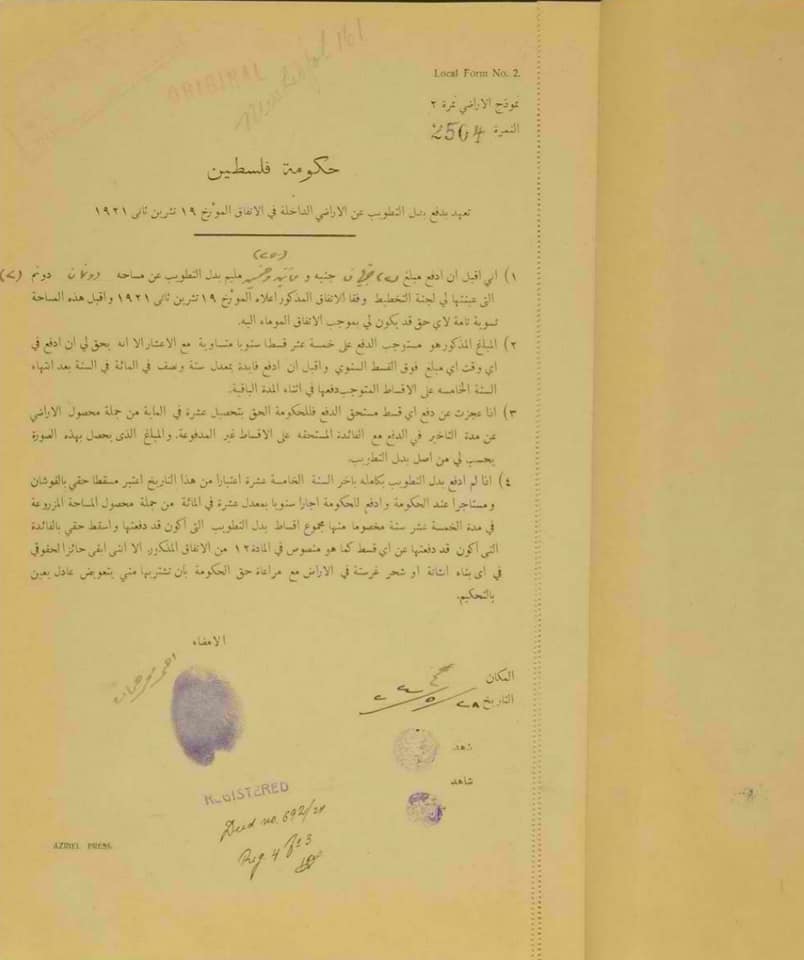 ORIGINAL
161
Local Form No. 2.
نموذج الاراضي نمرة ٢
النمرة 2504
حكومة فلسطين
تعهد بدفع بدل التطويب عن الاراضي الداخلة في الاتفاق المؤرخ ١٩ تشرين ثانى ١٩٢١
١) اني اقبل ان ادفع مبلغ جنيه و مليم بدل التطويب عن مساحه دونمان دونم (٢)
التى عينتها لي لجنة التخطيط وفقا الاتفاق المذكور اعلاه المؤرخ ١٩ تشرين ثانى ١٩٢١ واقبل هذه المساحة
تسوية تامة لاي حق قد يكون لي بموجب الاتفاق الموماء اليه.
٢) المبلغ المذكور هو مستوجب الدفع على خمسة عشر قسطا سنويا متساوية مع الاعتبار الا انه يحق لي ان ادفع في
اي وقت اي مبلغ فوق القسط السنوي واقبل ان ادفع فايدة بمعدل ستة ونصف في المائة في السنة بعد انتهاء
السنة الخامسه على الاقساط المتوجب دفعها في اثناء المدة الباقية.
٣) اذا عجزت عن دفع اي قسط مستحق الدفع فللحكومة الحق بتحصيل عشرة في الماية من جملة محصول الاراضي
عن مدة التاخير في الدفع مع الفائدة المستحقه على الاقساط غير المدفوعة. والمبلغ الذى يحصل بهذه الصورة
يحسب لي من اصل بدل التطويب.
٤) اذا لم ادفع بدل التطويب بكامله بآخر السنة الخامسة عشرة اعتبارا من هذا التاريخ اعتبر مسقطا حقي بالقوشان
ومستاجرا عند الحكومة وادفع للحكومة اجارا سنويا بمعدل عشرة في المائة من جملة محصول المساحة المزروعة
في مدة الخمسة عشر سنة مخصوما منها مجموع اقساط بدل التطويب التى أكون قد دفعتها واسقط حقي بالفائدة
التى أكون قد دفعتها عن اي قسط كما هو منصوص في المادة ١٢ من الاتفاق المذكور. الا اننى ابقى حائزا لحقوقي
في اى بناء انشأته او شجر غرسته في الاراض مع مراعاة حق الحكومة بان تشتريها مني بتعويض عادل يعين
بالتحكيم.
الامضاء
المكان
التاريخ ٢٨/٥/٢٤
شاهد
شاهد
REGISTERED
Deed no. 692/24
Reg. 4 fo 3
AZRIEL PRESS.